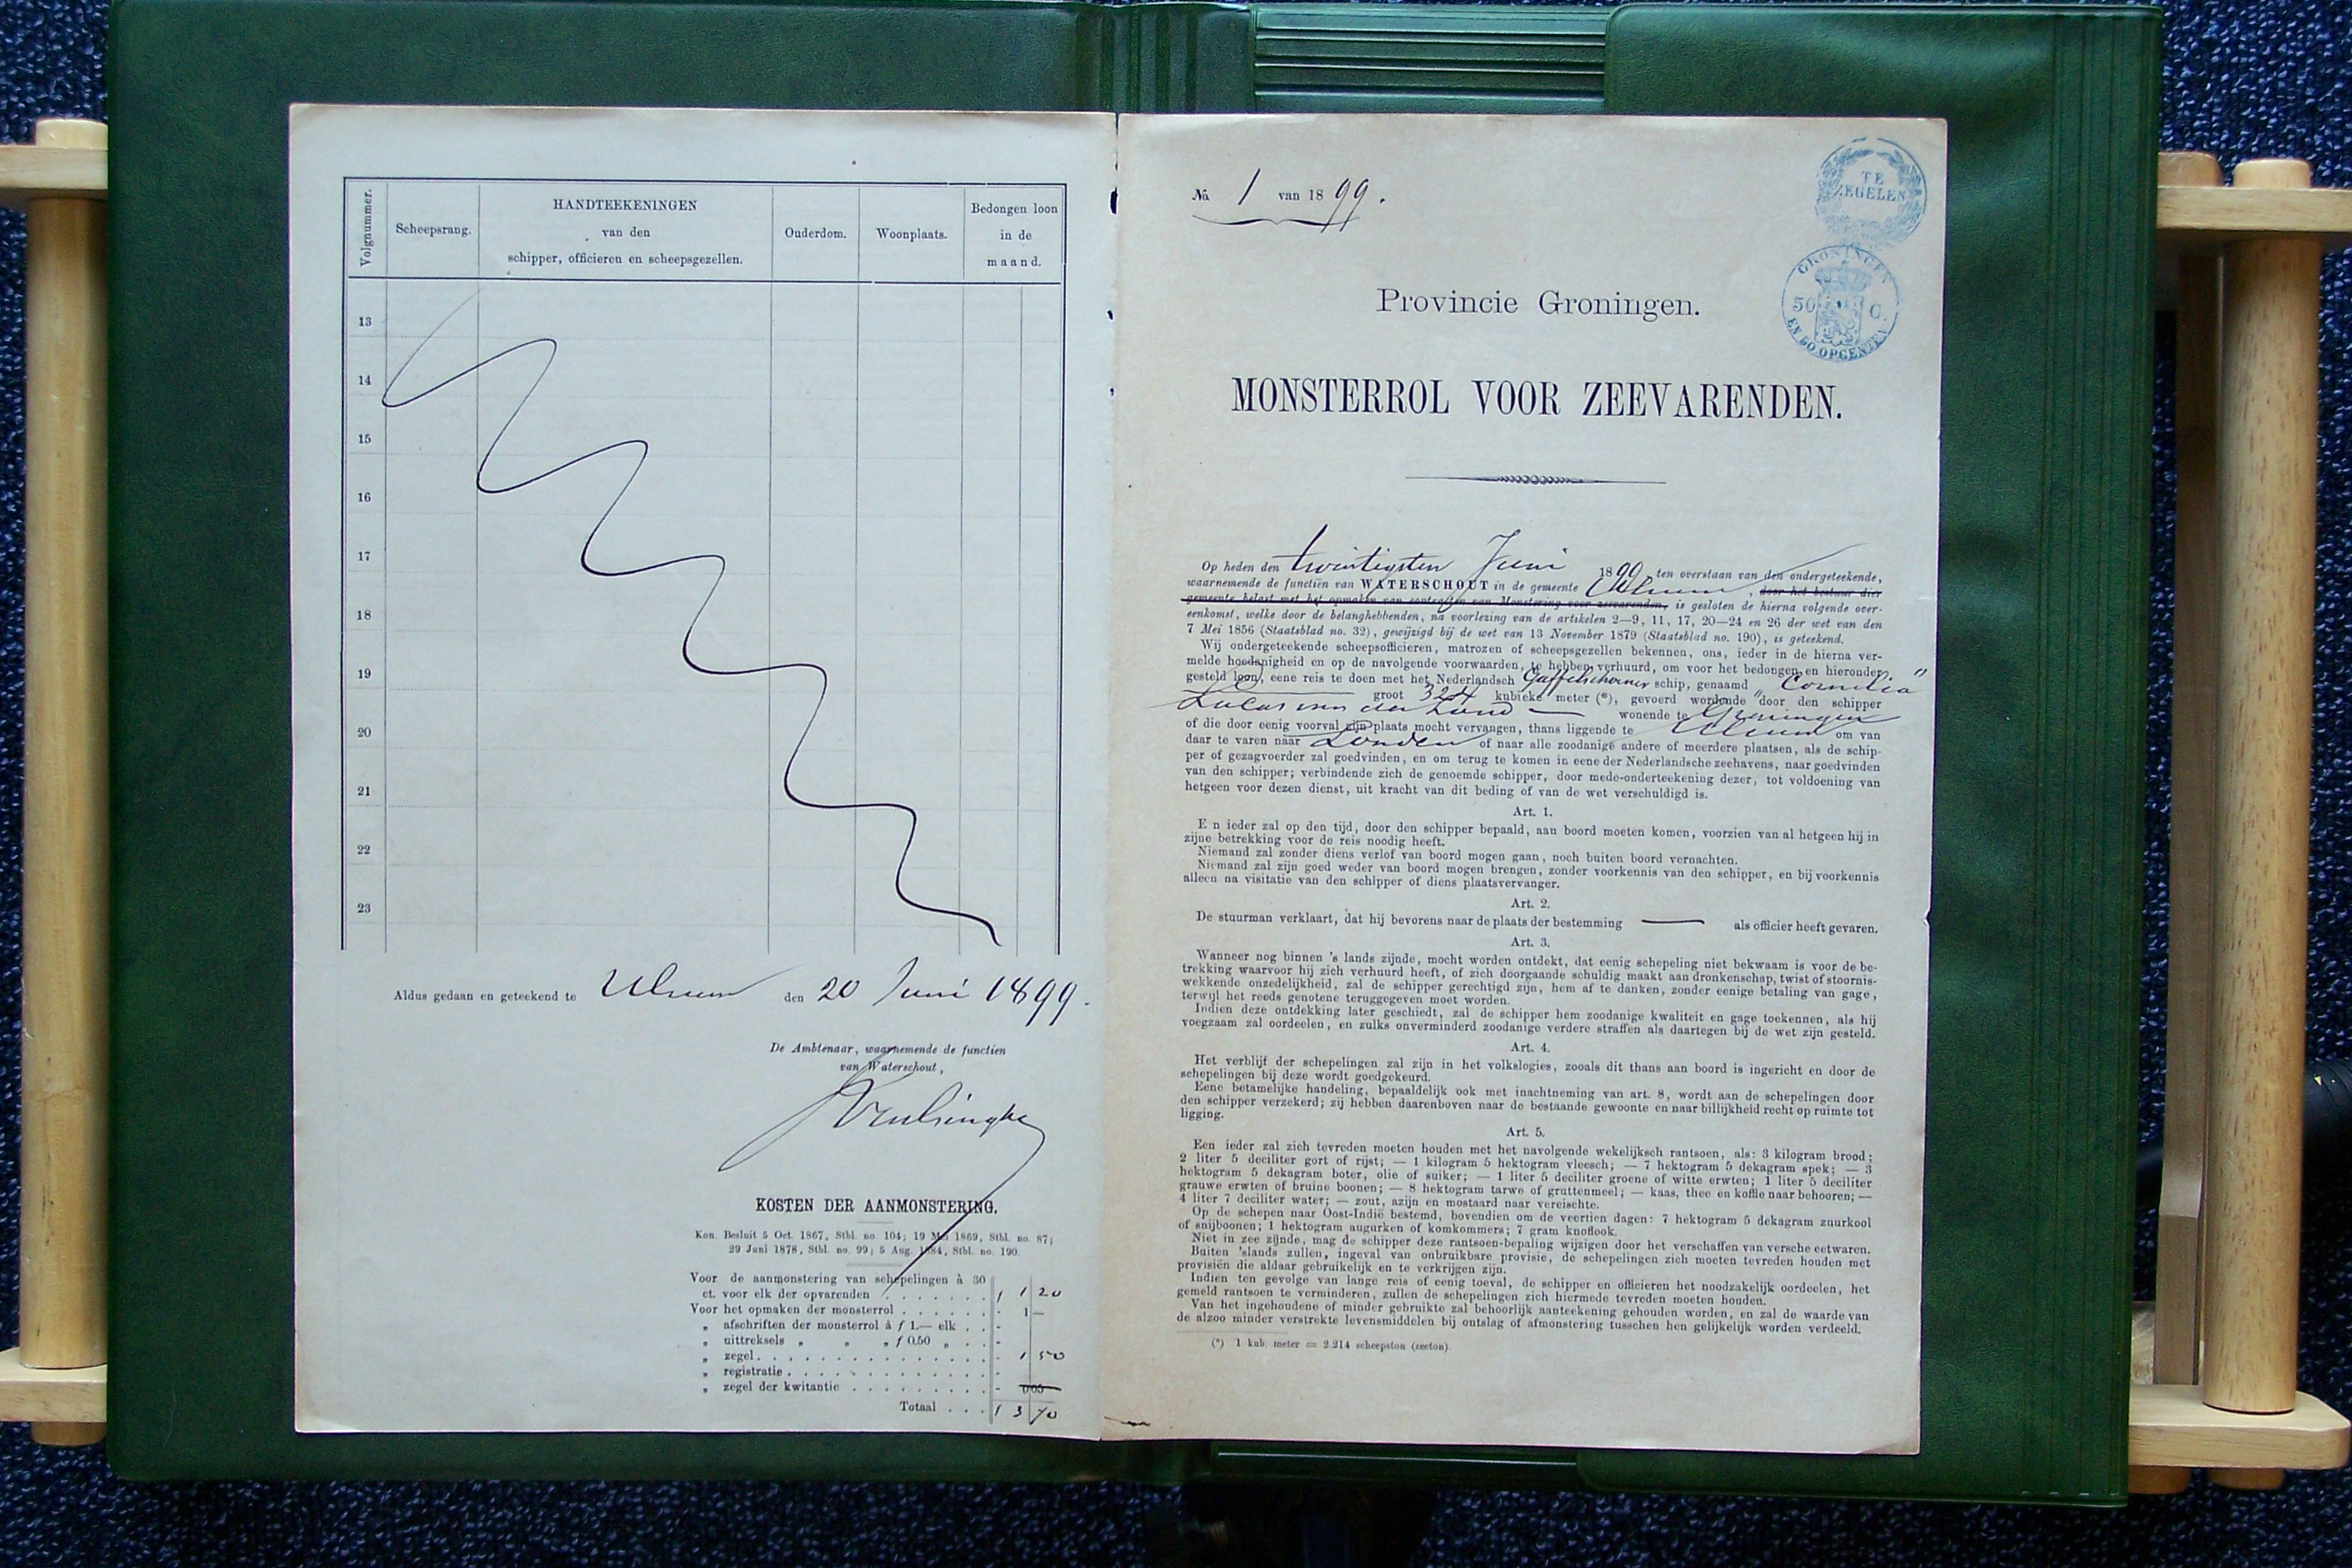 Volgnummer.
Scheepsrang.
HANDTEEKENINGEN
van den
schipper, officieren en scheepsgezellen.
Ouderdom.
Woonplaats.
Bedongen loon
in de
maand.
13
14
15
16
17
18
19
20
21
22
23
Aldus gedaan en geteekend te Ulrum den 20 Juni 1899.
De Ambtenaar, waarnemende de functien
van Waterschout,
KOSTEN DER AANMONSTERING.
Kon. Besluit 5 Oct. 1867, Stbl. no. 104; 19 Mei 1869, Stbl. no. 87;
29 Juni 1878, Stbl. no. 99; 5 Aug. 1884, Stbl. no. 190.
Voor de aanmonstering van schepelingen à 30
ct. voor elk der opvarenden . . . . . . . f 1 20
Voor het opmaken der monsterrol . . . . . . - 1 —
„ afschriften der monsterrol à f 1.— elk . . -
„ uittreksels „ „ „ f 0.50 „ . . -
„ zegel . . . . . . . . . . . . . . - 1 50
„ registratie . . . . . . . . . . . . -
„ zegel der kwitantie . . . . . . . . . - 0 05
Totaal . . . f 3 70
No. 1 van 1899.
TE
ZEGELEN
GRONINGEN
50 C.
EN 50 OPCENTEN
Provincie Groningen.
MONSTERROL VOOR ZEEVARENDEN.
Op heden den twintigsten Juni 1899 ten overstaan van den ondergeteekende,
waarnemende de functiën van WATERSCHOUT in de gemeente Ulrum, door het bestuur dier
gemeente belast met het opmaken van contracten van Monstering voor zeevarenden, is gesloten de hierna volgende over-
eenkomst, welke door de belanghebbenden, na voorlezing van de artikelen 2—9, 11, 17, 20—24 en 26 der wet van den
7 Mei 1856 (Staatsblad no. 32), gewijzigd bij de wet van 13 November 1879 (Staatsblad no. 190), is geteekend.
Wij ondergeteekende scheepsofficieren, matrozen of scheepsgezellen bekennen, ons, ieder in de hierna ver-
melde hoedanigheid en op de navolgende voorwaarden, te hebben verhuurd, om voor het bedongen en hieronder
gesteld loon, eene reis te doen met het Nederlandsch Gaffelschoener schip, genaamd "Cornelia"
groot 324 kubieke meter (*), gevoerd wordende door den schipper
Lucas van der Zand wonende te Groningen
of die door eenig voorval zijn plaats mocht vervangen, thans liggende te Ulrum om van
daar te varen naar Londen of naar alle zoodanige andere of meerdere plaatsen, als de schip-
per of gezagvoerder zal goedvinden, en om terug te komen in eene der Nederlandsche zeehavens, naar goedvinden
van den schipper; verbindende zich de genoemde schipper, door mede-onderteekening dezer, tot voldoening van
hetgeen voor dezen dienst, uit kracht van dit beding of van de wet verschuldigd is.
Art. 1.
E n ieder zal op den tijd, door den schipper bepaald, aan boord moeten komen, voorzien van al hetgeen hij in
zijne betrekking voor de reis noodig heeft.
Niemand zal zonder diens verlof van boord mogen gaan, noch buiten boord vernachten.
Niemand zal zijn goed weder van boord mogen brengen, zonder voorkennis van den schipper, en bij voorkennis
alleen na visitatie van den schipper of diens plaatsvervanger.
Art. 2.
De stuurman verklaart, dat hij bevorens naar de plaats der bestemming — als officier heeft gevaren.
Art. 3.
Wanneer nog binnen 's lands zijnde, mocht worden ontdekt, dat eenig schepeling niet bekwaam is voor de be-
trekking waarvoor hij zich verhuurd heeft, of zich doorgaande schuldig maakt aan dronkenschap, twist of stoornis-
wekkende onzedelijkheid, zal de schipper gerechtigd zijn, hem af te danken, zonder eenige betaling van gage,
terwijl het reeds genotene teruggegeven moet worden.
Indien deze ontdekking later geschiedt, zal de schipper hem zoodanige kwaliteit en gage toekennen, als hij
voegzaam zal oordeelen, en zulks onverminderd zoodanige verdere straffen als daartegen bij de wet zijn gesteld.
Art. 4.
Het verblijf der schepelingen zal zijn in het volkslogies, zooals dit thans aan boord is ingericht en door de
schepelingen bij deze wordt goedgekeurd.
Eene betamelijke handeling, bepaaldelijk ook met inachtneming van art. 8, wordt aan de schepelingen door
den schipper verzekerd; zij hebben daarenboven naar de bestaande gewoonte en naar billijkheid recht op ruimte tot
ligging.
Art. 5.
Een ieder zal zich tevreden moeten houden met het navolgende wekelijksch rantsoen, als: 3 kilogram brood;
2 liter 5 deciliter gort of rijst; — 1 kilogram 5 hektogram vleesch; — 7 hektogram 5 dekagram spek; — 3
hektogram 5 dekagram boter, olie of suiker; — 1 liter 5 deciliter groene of witte erwten; 1 liter 5 deciliter
grauwe erwten of bruine boonen; — 8 hektogram tarwe of gruttenmeel; — kaas, thee en koffie naar behooren; —
4 liter 7 deciliter water; — zout, azijn en mostaard naar vereischte.
Op de schepen naar Oost-Indië bestemd, bovendien om de veertien dagen: 7 hektogram 5 dekagram zuurkool
of snijboonen; 1 hektogram augurken of komkommers; 7 gram knoflook.
Niet in zee zijnde, mag de schipper deze rantsoen-bepaling wijzigen door het verschaffen van versche eetwaren.
Buiten 'slands zullen, ingeval van onbruikbare provisie, de schepelingen zich moeten tevreden houden met
provisiën die aldaar gebruikelijk en te verkrijgen zijn.
Indien ten gevolge van lange reis of eenig toeval, de schipper en officieren het noodzakelijk oordeelen, het
gemeld rantsoen te verminderen, zullen de schepelingen zich hiermede tevreden moeten houden.
Van het ingehoudene of minder gebruikte zal behoorlijk aanteekening gehouden worden, en zal de waarde van
de alzoo minder verstrekte levensmiddelen bij ontslag of afmonstering tusschen hen gelijkelijk worden verdeeld.
(*) 1 kub. meter = 2.214 scheepston (zeeton).